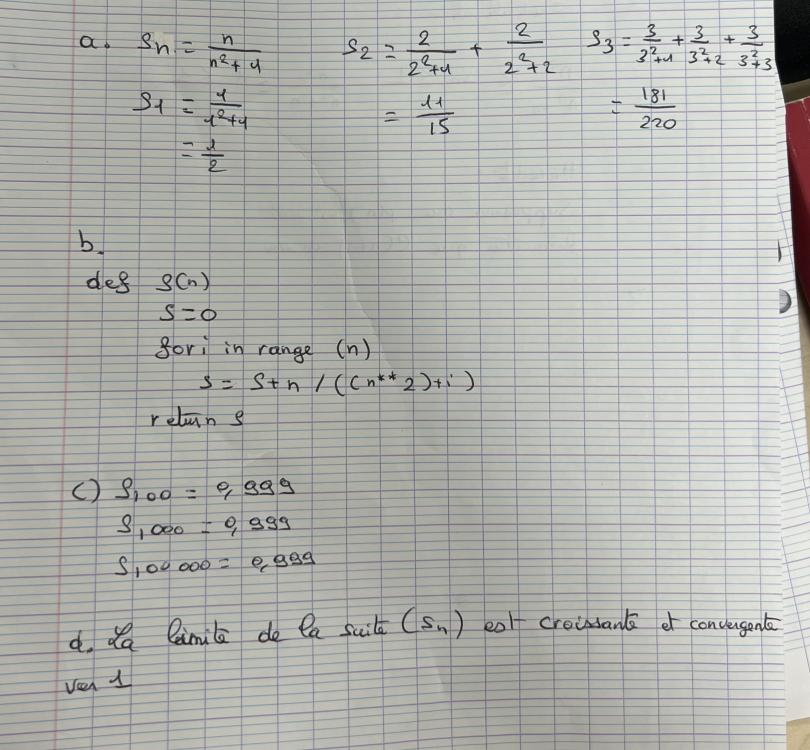 a. Sn = n/(n²+1)   S2 = 2/(2²+1) + 2/(2²+2)   S3 = 3/(3²+1) + 3/(3²+2) + 3/(3²+3)
S1 = 1/(1²+1)   = 11/15   = 181/220
= 1/2
b.
def S(n)
S=0
for i in range (n)
S = S+n / ((n**2)+i)
return S
c) S100 = 0,999
S1000 = 0,999
S100 000 = 0,999
d. La limite de la suite (Sn) est croissante et convergente
vers 1